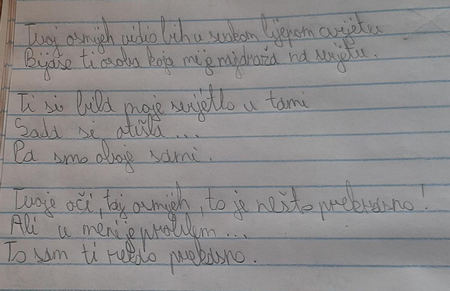 Tvoj osmijeh vidio bih u svakom lijepom cvijetu
Bijaše ti osoba koja mi je najdraža na svijetu.
Ti si bila moje svijetlo u tami
Sada si otišla...
Pa smo oboje sami.
Tvoje oči, taj osmijeh, to je nešto prekrasno!
Ali u meni je problem...
To sam ti rekao prekasno.